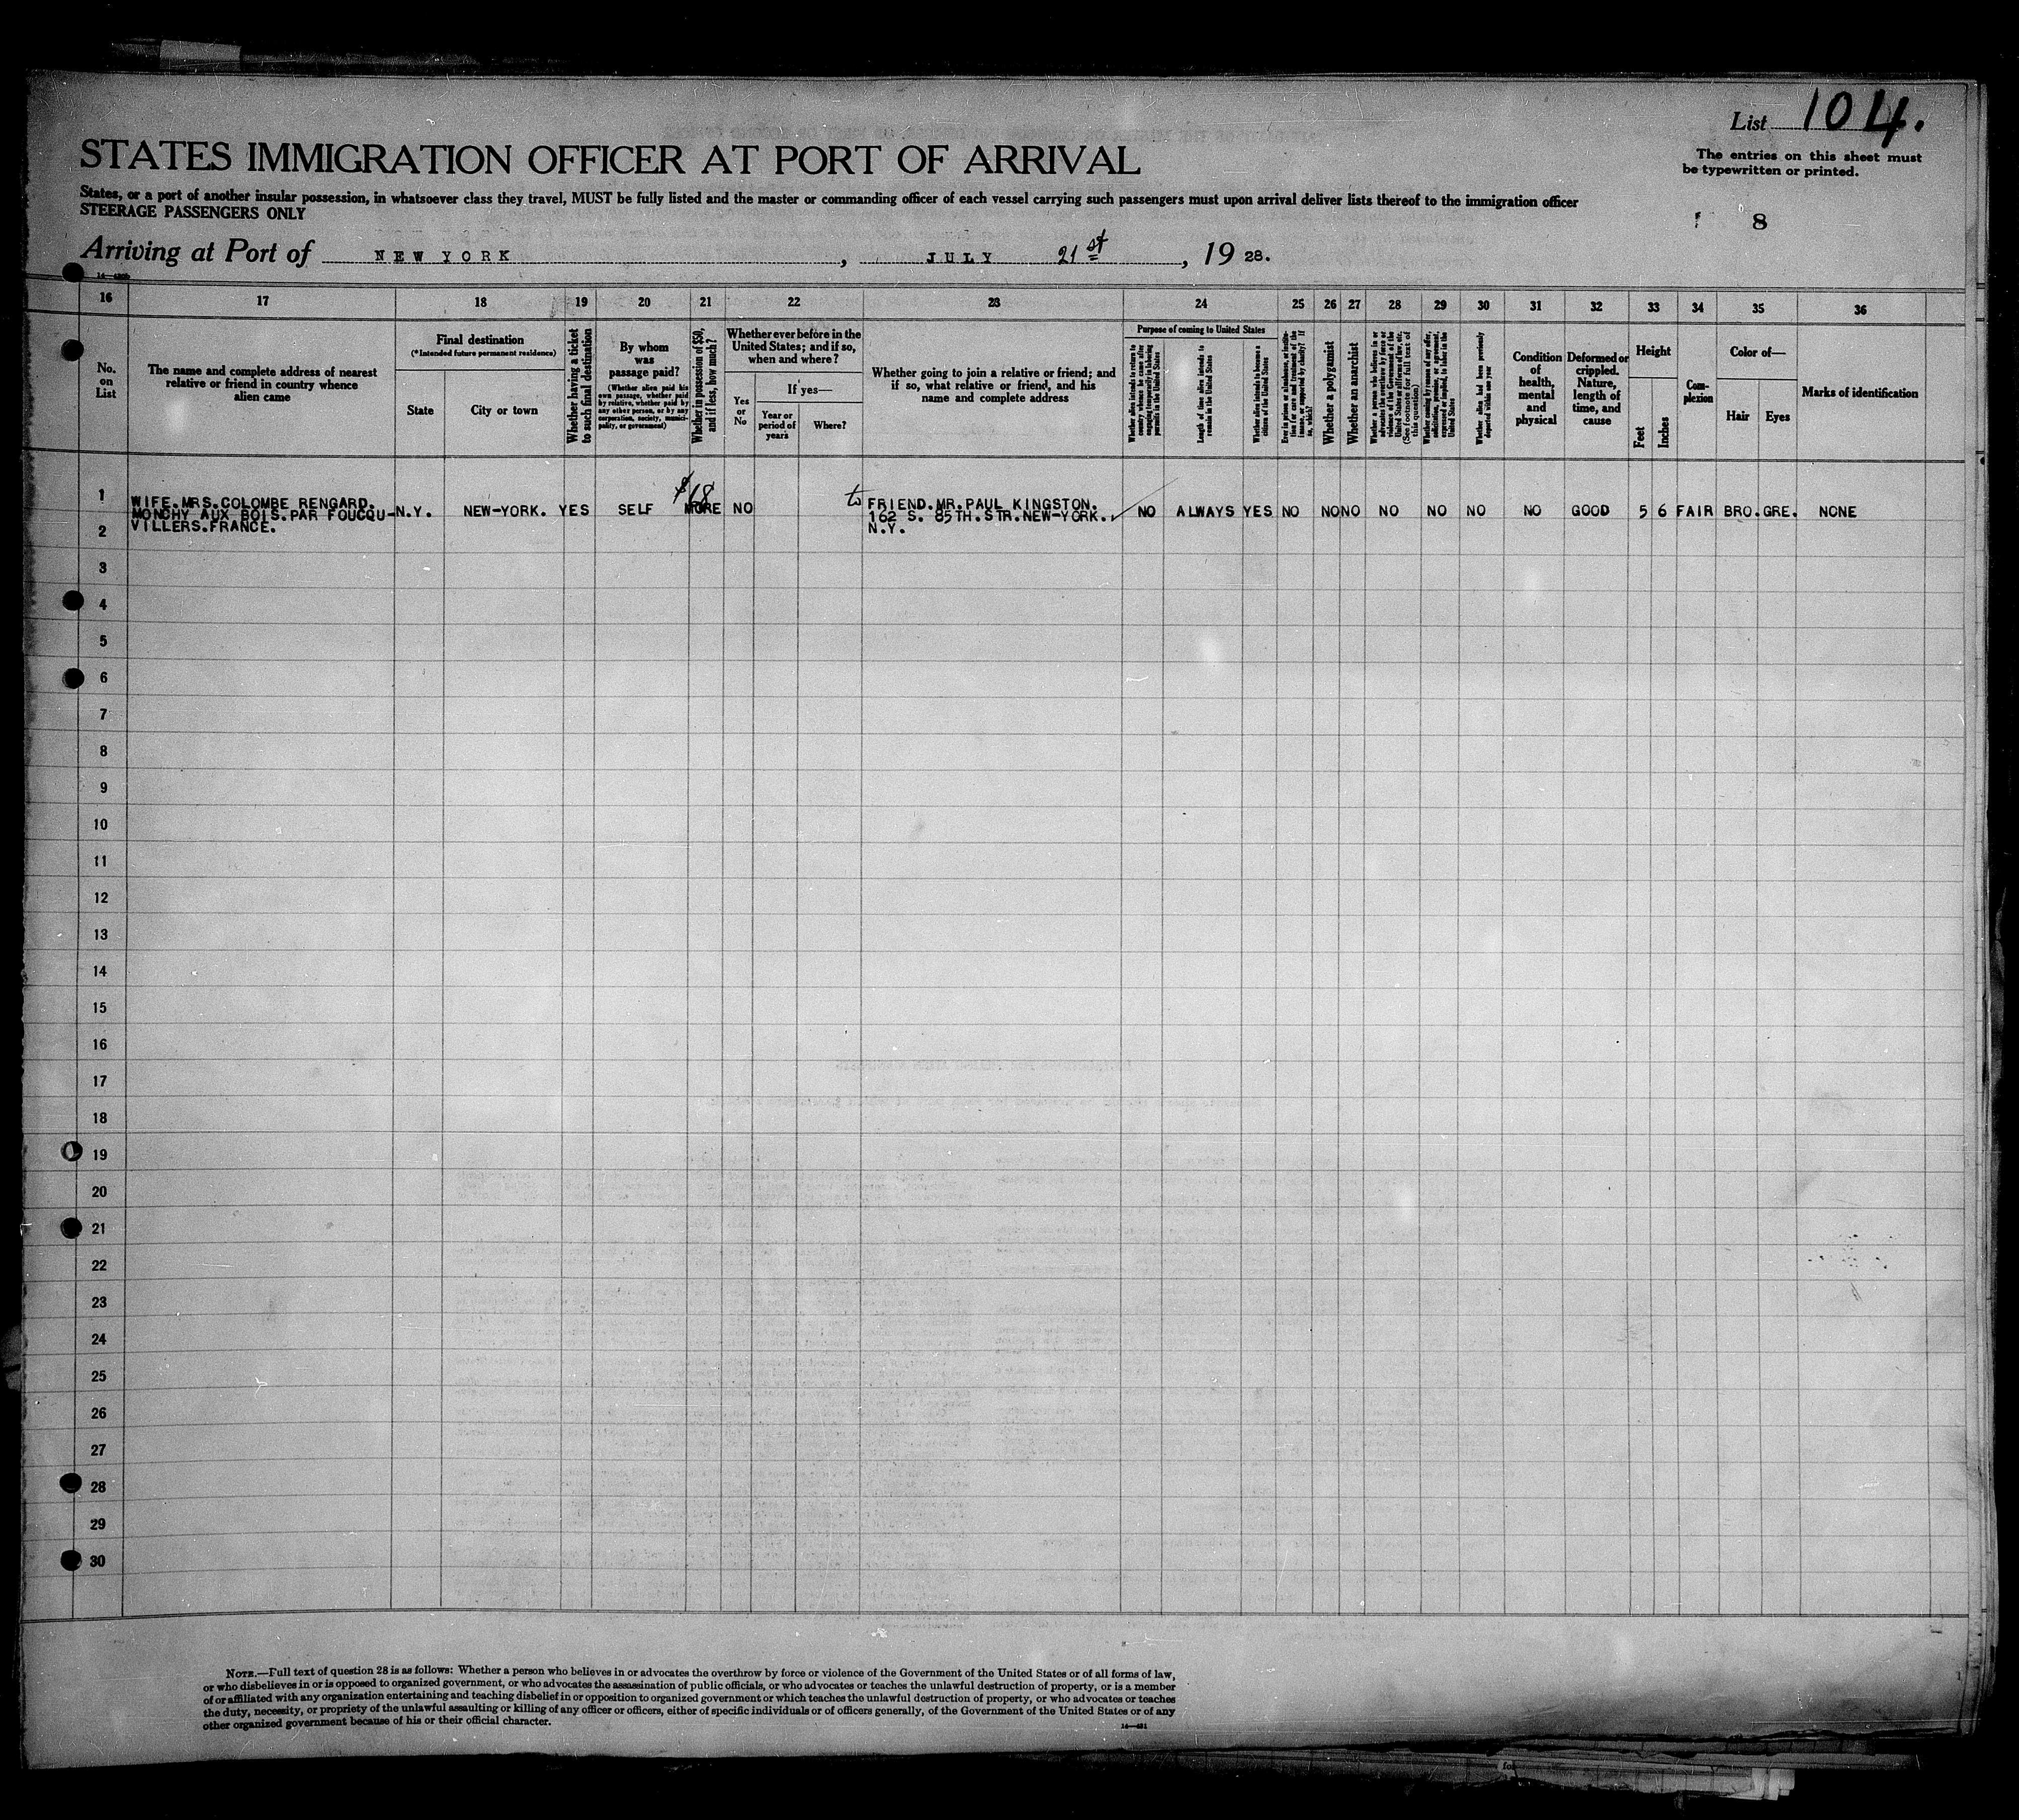 List 104.
The entries on this sheet must
be typewritten or printed.
STATES IMMIGRATION OFFICER AT PORT OF ARRIVAL
States, or a port of another insular possession, in whatsoever class they travel, MUST be fully listed and the master or commanding officer of each vessel carrying such passengers must upon arrival deliver lists thereof to the immigration officer
STEERAGE PASSENGERS ONLY
8
Arriving at Port of NEW YORK, JULY 21st, 1928.
16 17 18 19 20 21 22 23 24 25 26 27 28 29 30 31 32 33 34 35 36
No.
on
List
The name and complete address of nearest
relative or friend in country whence
alien came
Final destination
(*Intended future permanent residence)
State
City or town
Whether having a ticket
to such final destination
By whom
was
passage paid?
(Whether alien paid his
own passage, whether paid
by relative, whether paid by
any other person, or by any
corporation, society, munici-
pality, or government)
Whether in possession of $50,
and if less, how much?
Whether ever before in the
United States; and if so,
when and where?
Yes
or
No
If yes—
Year or
period of
years
Where?
Whether going to join a relative or friend; and
if so, what relative or friend, and his
name and complete address
Purpose of coming to United States
Length of time alien intends to
remain in the United States
Whether alien intends to become a
citizen of the United States
Whether a polygamist
Whether an anarchist
(See footnote for full text of
this question)
Whether alien had been previously
deported within one year
Condition
of
health,
mental
and
physical
Deformed or
crippled.
Nature,
length of
time, and
cause
Height
Feet
Inches
Com-
plexion
Color of—
Hair
Eyes
Marks of identification
$18
1 WIFE.MRS.COLOMBE RENGARD. to FRIEND.MR.PAUL KINGSTON.
MONCHY AUX BOIS.PAR FOUCQU- N.Y. NEW-YORK. YES SELF MORE NO 162 S. 85TH.STR.NEW-YORK. NO ALWAYS YES NO NO NO NO NO NO NO GOOD 5 6 FAIR BRO. GRE. NONE
2 VILLERS.FRANCE. N.Y.
3
4
5
6
7
8
9
10
11
12
13
14
15
16
17
18
19
20
21
22
23
24
25
26
27
28
29
30
NOTE.—Full text of question 28 is as follows: Whether a person who believes in or advocates the overthrow by force or violence of the Government of the United States or of all forms of law,
or who disbelieves in or is opposed to organized government, or who advocates the assassination of public officials, or who advocates or teaches the unlawful destruction of property, or is a member
of or affiliated with any organization entertaining and teaching disbelief in or opposition to organized government or which teaches the unlawful destruction of property, or who advocates or teaches
the duty, necessity, or propriety of the unlawful assaulting or killing of any officer or officers, either of specific individuals or of officers generally, of the Government of the United States or of any
other organized government because of his or their official character.